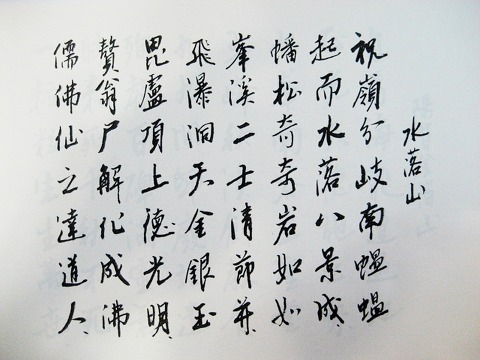 水落山
祝嶺分岐南蝹蝹
起而水落八景成
幡松奇奇岩如如
峯溪二士清節幷
飛瀑洄天金銀玉
毘盧項上德光明
贅翁尸解化成佛
儒佛仙之達道人